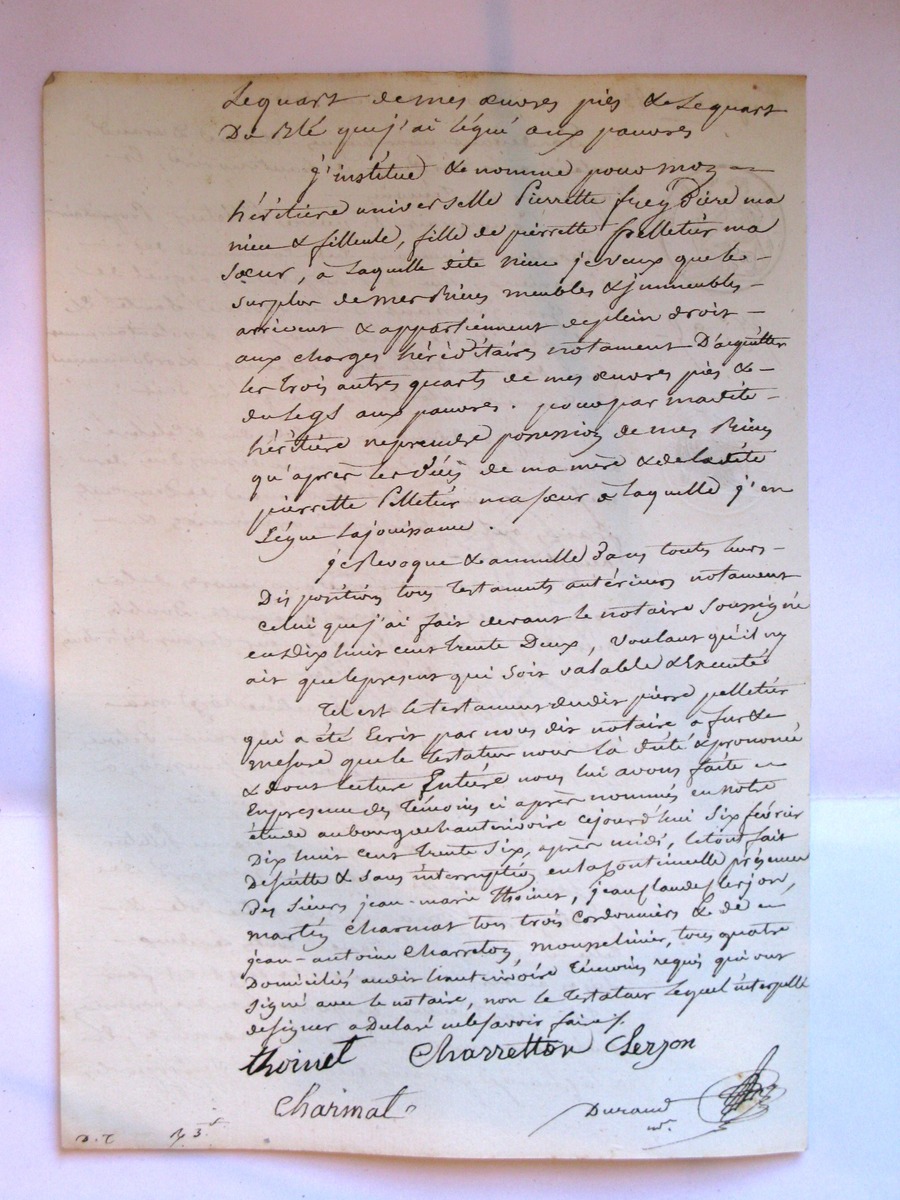 Le quart de mes œuvres pies & Le quart
Du Blé que j'ai légué aux pauvres
j'institue & nomme pour moy
héritière universelle Pierrette freydière ma
niece & filleule, fille de pierrette pelletier ma
sœur, à laquelle dite niece je veux que le
surplus de mes Biens meubles & jmmeubles
arrivent & appartiennent de plein droit
aux charges héréditaires notament D'acquitter
les trois autres quarts de mes œuvres pies &
du Legs aux pauvres. pour par madite
héritière ne prendre possession de mes Biens
qu'après les Vies de ma mère & de ladite
pierrette Pelletier ma sœur à laquelle j'en
Lègue la jouissance.
je Revoque & annulle dans toutes leurs
Dispositions tous Testaments antérieurs notament
celui que j'ai fait devant le notaire soussigné
en dix huit cent trente Deux, voulant qu'il ny
ait que le present qui soit valable & Executé
Tel est le testament dudit pierre pelletier
qui a été Ecrit par nous dit notaire à fur &
mesure que le Testateur nous l'a dicté & prononcé
& dont lecture Entière nous lui avons faite en
En presence des Témoins ci après nommés en notre
étude au bourg de hauterivoire cejourd'hui six février
Dix huit cent trente six, après midi, le tout fait
De suitte & sans interruption en la Continuelle présence
Des sieurs jean-marie Thoinet, jean claude Serzon,
martin charmat tous trois cordonniers & de
jean-antoine Charreton, mousselinier, tous quatre
Domiciliés audit hauterivoire Témoins requis qui ont
signé avec le notaire, non le Testateur lequel interpellé
de signer a Declaré ne le savoir faire.
thoinet Charretton Serzon
Charmat
Durand
D. T. 3